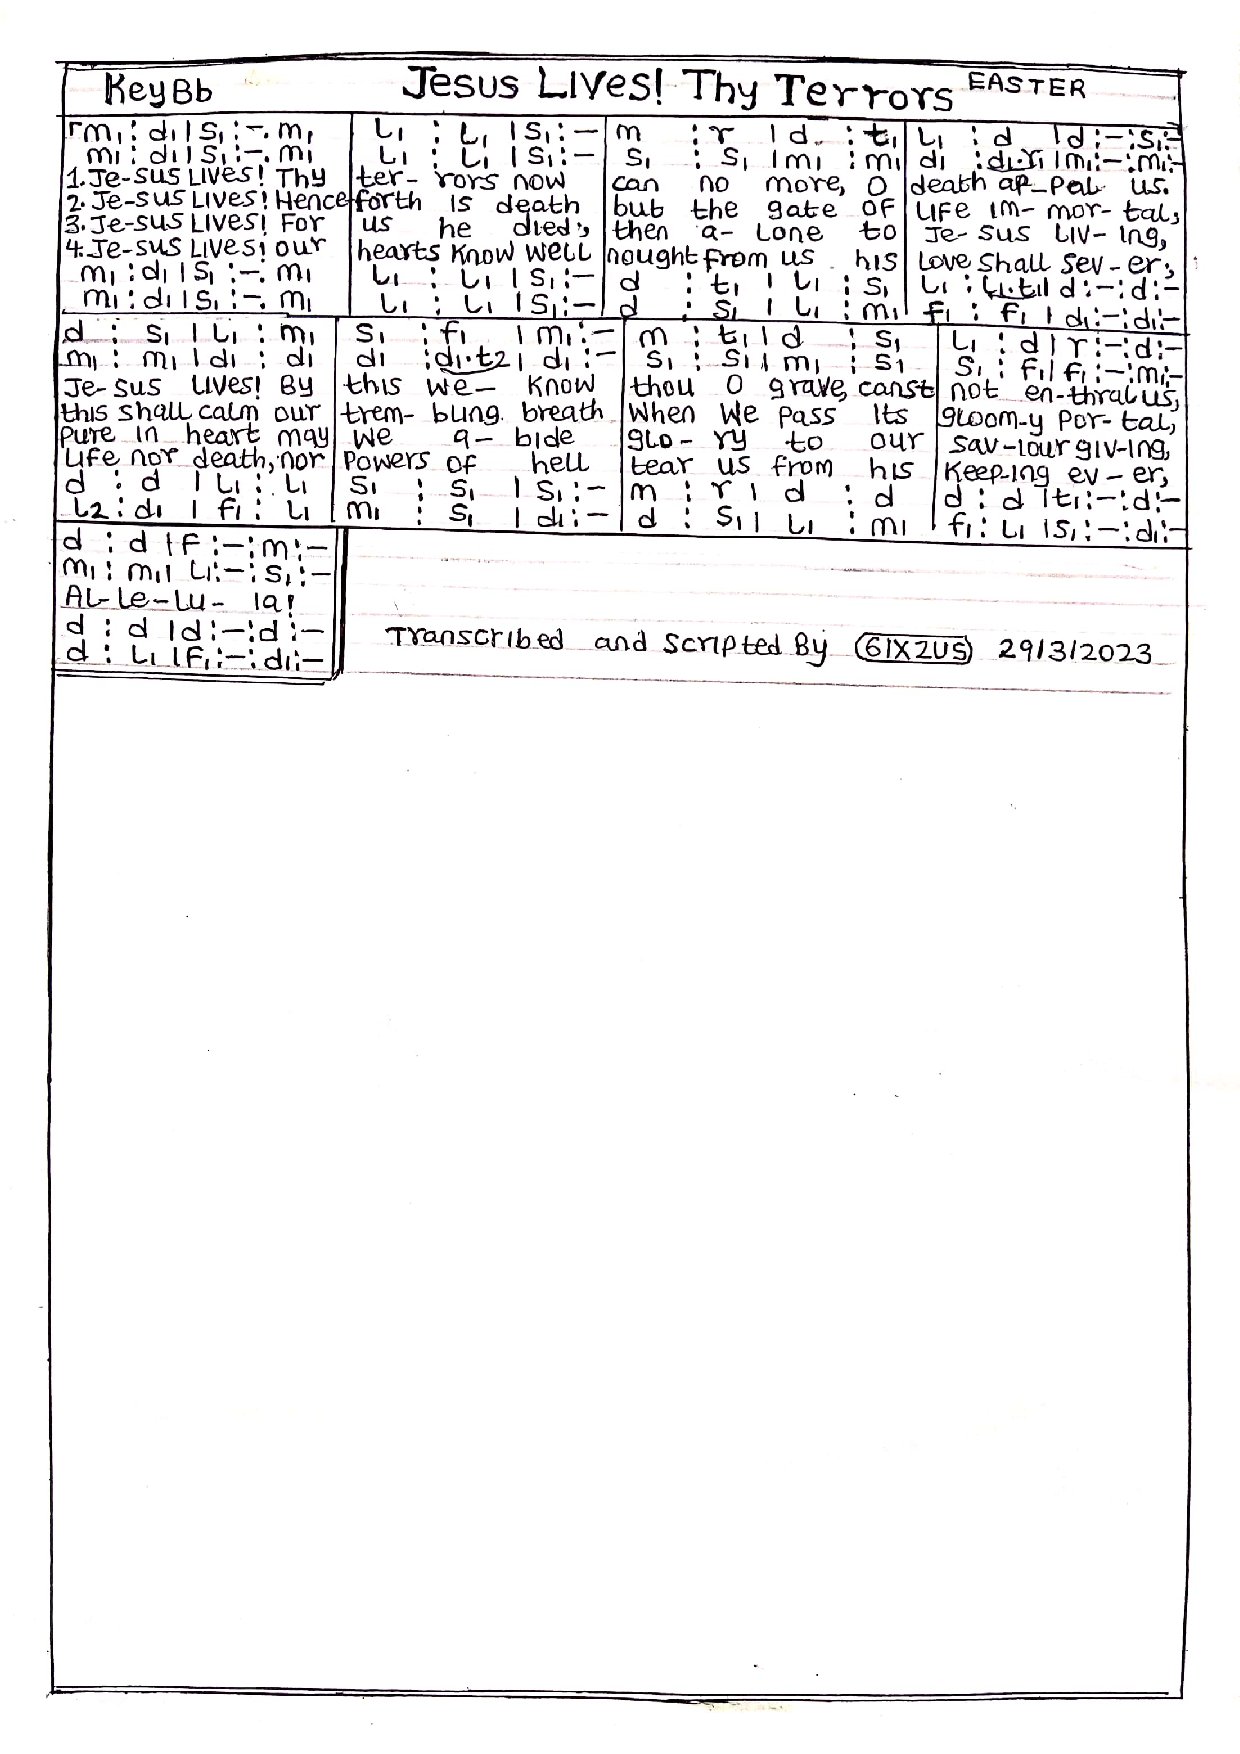 Key Bb Jesus Lives! Thy Terrors EASTER
rm₁ : d₁ | s₁ : -. m₁ l₁ : l₁ | s₁ : - m : r | d : t₁ l₁ : d | d : - : s₁ : -
m₁ : d₁ | s₁ : -. m₁ l₁ : l₁ | s₁ : - s₁ : s₁ | m₁ : m₁ d₁ : d₁.r₁ | m₁ : - : m₁ : -
1. Je-sus Lives! Thy ter- rors now can no more, O death ap-pal us.
2. Je-sus Lives! Hence forth is death but the gate of life im-mor-tal,
3. Je-sus Lives! For us he died; then a-lone to Je-sus liv-ing,
4. Je-sus Lives! our hearts know well nought from us his love shall sev-er,
m₁ : d₁ | s₁ : -. m₁ l₁ : l₁ | s₁ : - d : t₁ | l₁ : s₁ l₁ : l₁.t₁ | d : - : d : -
m₁ : d₁ | s₁ : -. m₁ l₁ : l₁ | s₁ : - d : s₁ | l₁ : m₁ f₁ : f₁ | d₁ : - : d₁ : -
d : s₁ | l₁ : m₁ s₁ : f₁ | m₁ : - m : t₁ | d : s₁ l₁ : d | r : - : d : -
m₁ : m₁ | d₁ : d₁ d₁ : d₁.t2 | d₁ : - s₁ : s₁ | m₁ : s₁ s₁ : f₁ | f₁ : - : m₁ : -
Je-sus lives! By this we- know thou O grave, canst not en-thral us,
this shall calm our trem-bling breath When we pass its gloom-y por-tal,
Pure in heart may we a-bide glo-ry to our sav-iour giv-ing,
life nor death, nor Powers of hell tear us from his Keep-ing ev-er,
d : d | l₁ : l₁ s₁ : s₁ | s₁ : - m : r | d : d d : d | t₁ : - : d : -
l2 : d₁ | f₁ : l₁ m₁ : s₁ | d₁ : - d : s₁ | l₁ : m₁ f₁ : l₁ | s₁ : - : d₁ : -
d : d | f : - : m : -
m₁ : m₁ | l₁ : - : s₁ : -
Al-le-lu-ia!
d : d | d : - : d : -
d : l₁ | f₁ : - : d₁ : -
Transcribed and Scripted By 6IX2US 29/3/2023